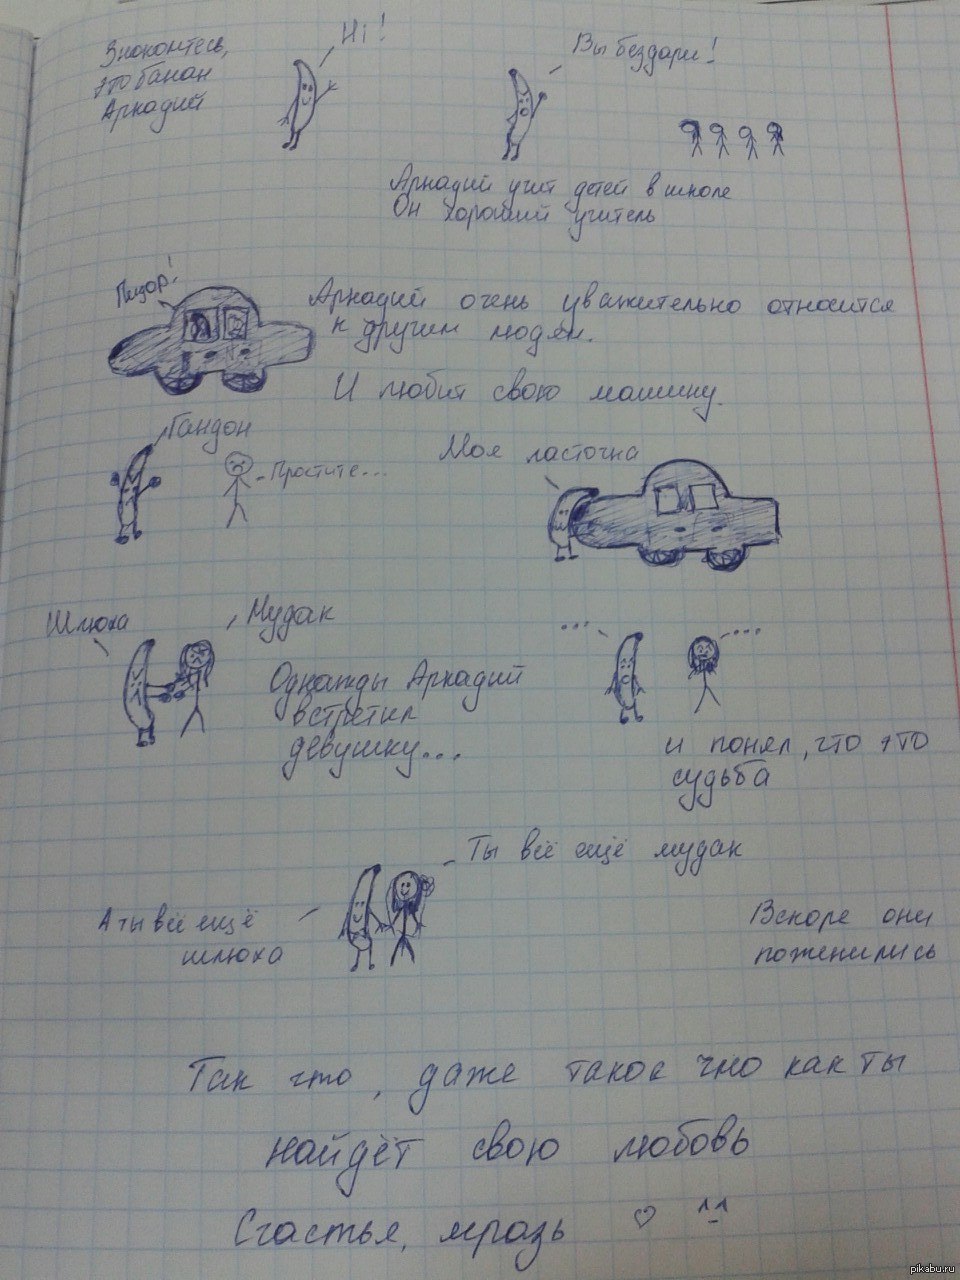 Знакомтесь,
это банан
Аркадий
Hi!
Вы бездари!
Аркадий учит детей в школе
Он хороший учитель
Пидор!
Аркадий очень уважительно относится
к другим людям.
И любит свою машину.
Гандон
Простите...
Моя ласточка
Шлюха
Мудак
Однажды Аркадий
встретил
девушку...
...
...
и понял, что это
судьба
Ты всё ещё мудак
А ты всё ещё
шлюха
Вскоре они
поженились
Так что, даже такое чмо как ты
найдёт свою любовь
Счастья, мразь ♡ ^_^
pikabu.ru